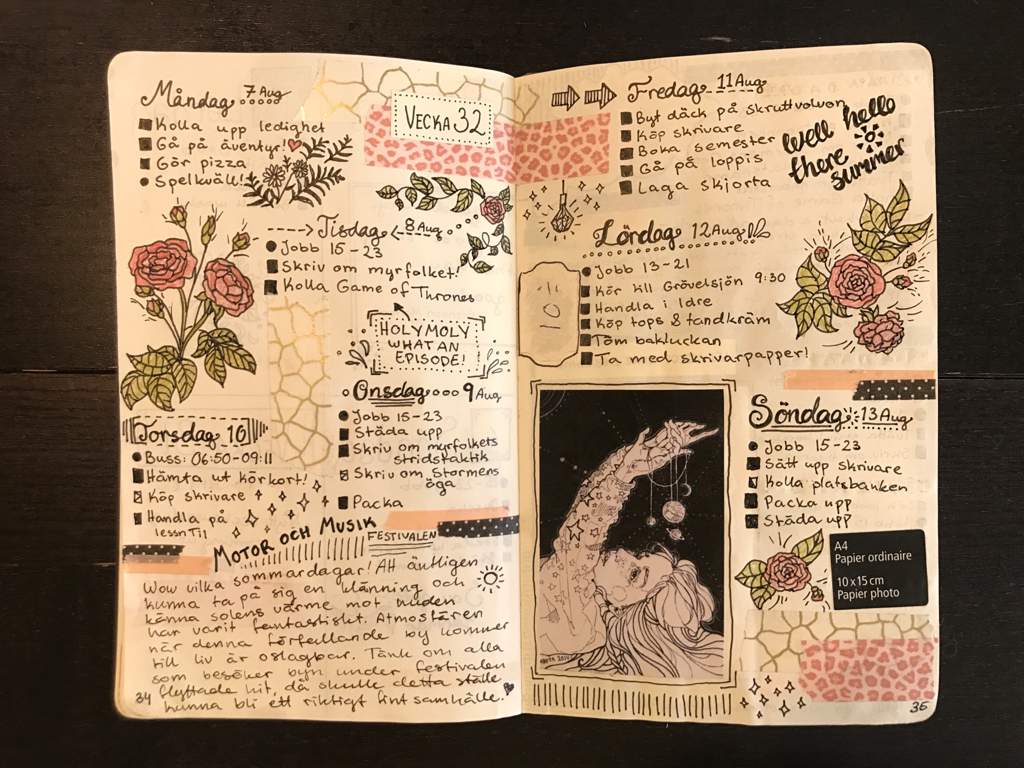 Måndag 7 Aug
Kolla upp ledighet
Gå på äventyr!
Gör pizza
Spelkväll!
VECKA 32
Tisdag 8 Aug
Jobb 15-23
Skriv om myrfolket!
Kolla Game of Thrones
HOLYMOLY
WHAT AN
EPISODE!
Onsdag 9 Aug
Jobb 15-23
Städa upp
Skriv om myrfolkets
stridstaktik
Skriv om Stormens
öga
Packa
Torsdag 10
Buss: 06:50-09:11
Hämta ut körkort!
Köp skrivare
Handla på
MOTOR OCH MUSIK
FESTIVALEN
Wow vilka sommardagar! Att äntligen
kunna ta på sig en klänning och
känna solens värme mot huden
har varit fantastiskt. Atmosfären
när denna förfallande by kommer
till liv är oslagbar. Tänk om alla
som besöker byn under festivalen
flyttade hit, då skulle detta ställe
kunna bli ett riktigt fint samhälle.
34
Fredag 11 Aug
Byt däck på skruttvolvon
Köp skrivare
Boka semester
Gå på loppis
Laga skjorta
Well hello
there
summer
Lördag 12 Aug
Jobb 13-21
Kör till Grövelsjön 9:30
Handla i Idre
Köp tops & tandkräm
Töm bakluckan
Ta med skrivarpapper!
Söndag 13 Aug
Jobb 15-23
Sätt upp skrivare
Kolla platsbanken
Packa upp
Städa upp
A4
Papier ordinaire
10 x 15 cm
Papier photo
35